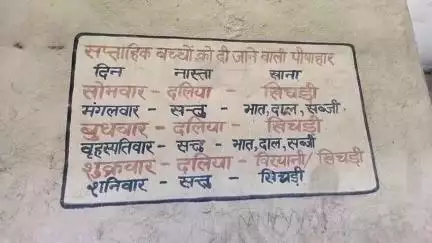 सप्ताहिक बच्चों को दी जाने वाली पोषाहार
दिन नास्ता खाना
सोमवार - दलिया - खिचड़ी
मंगलवार - सत्तु - भात,दाल,सब्जी
बुधवार - दलिया - खिचड़ी
वृहस्पतिवार - सत्तु - भात,दाल,सब्जी
शुक्रवार - दलिया - विरयानी/खिचड़ी
शनिवार - सत्तु - खिचड़ी